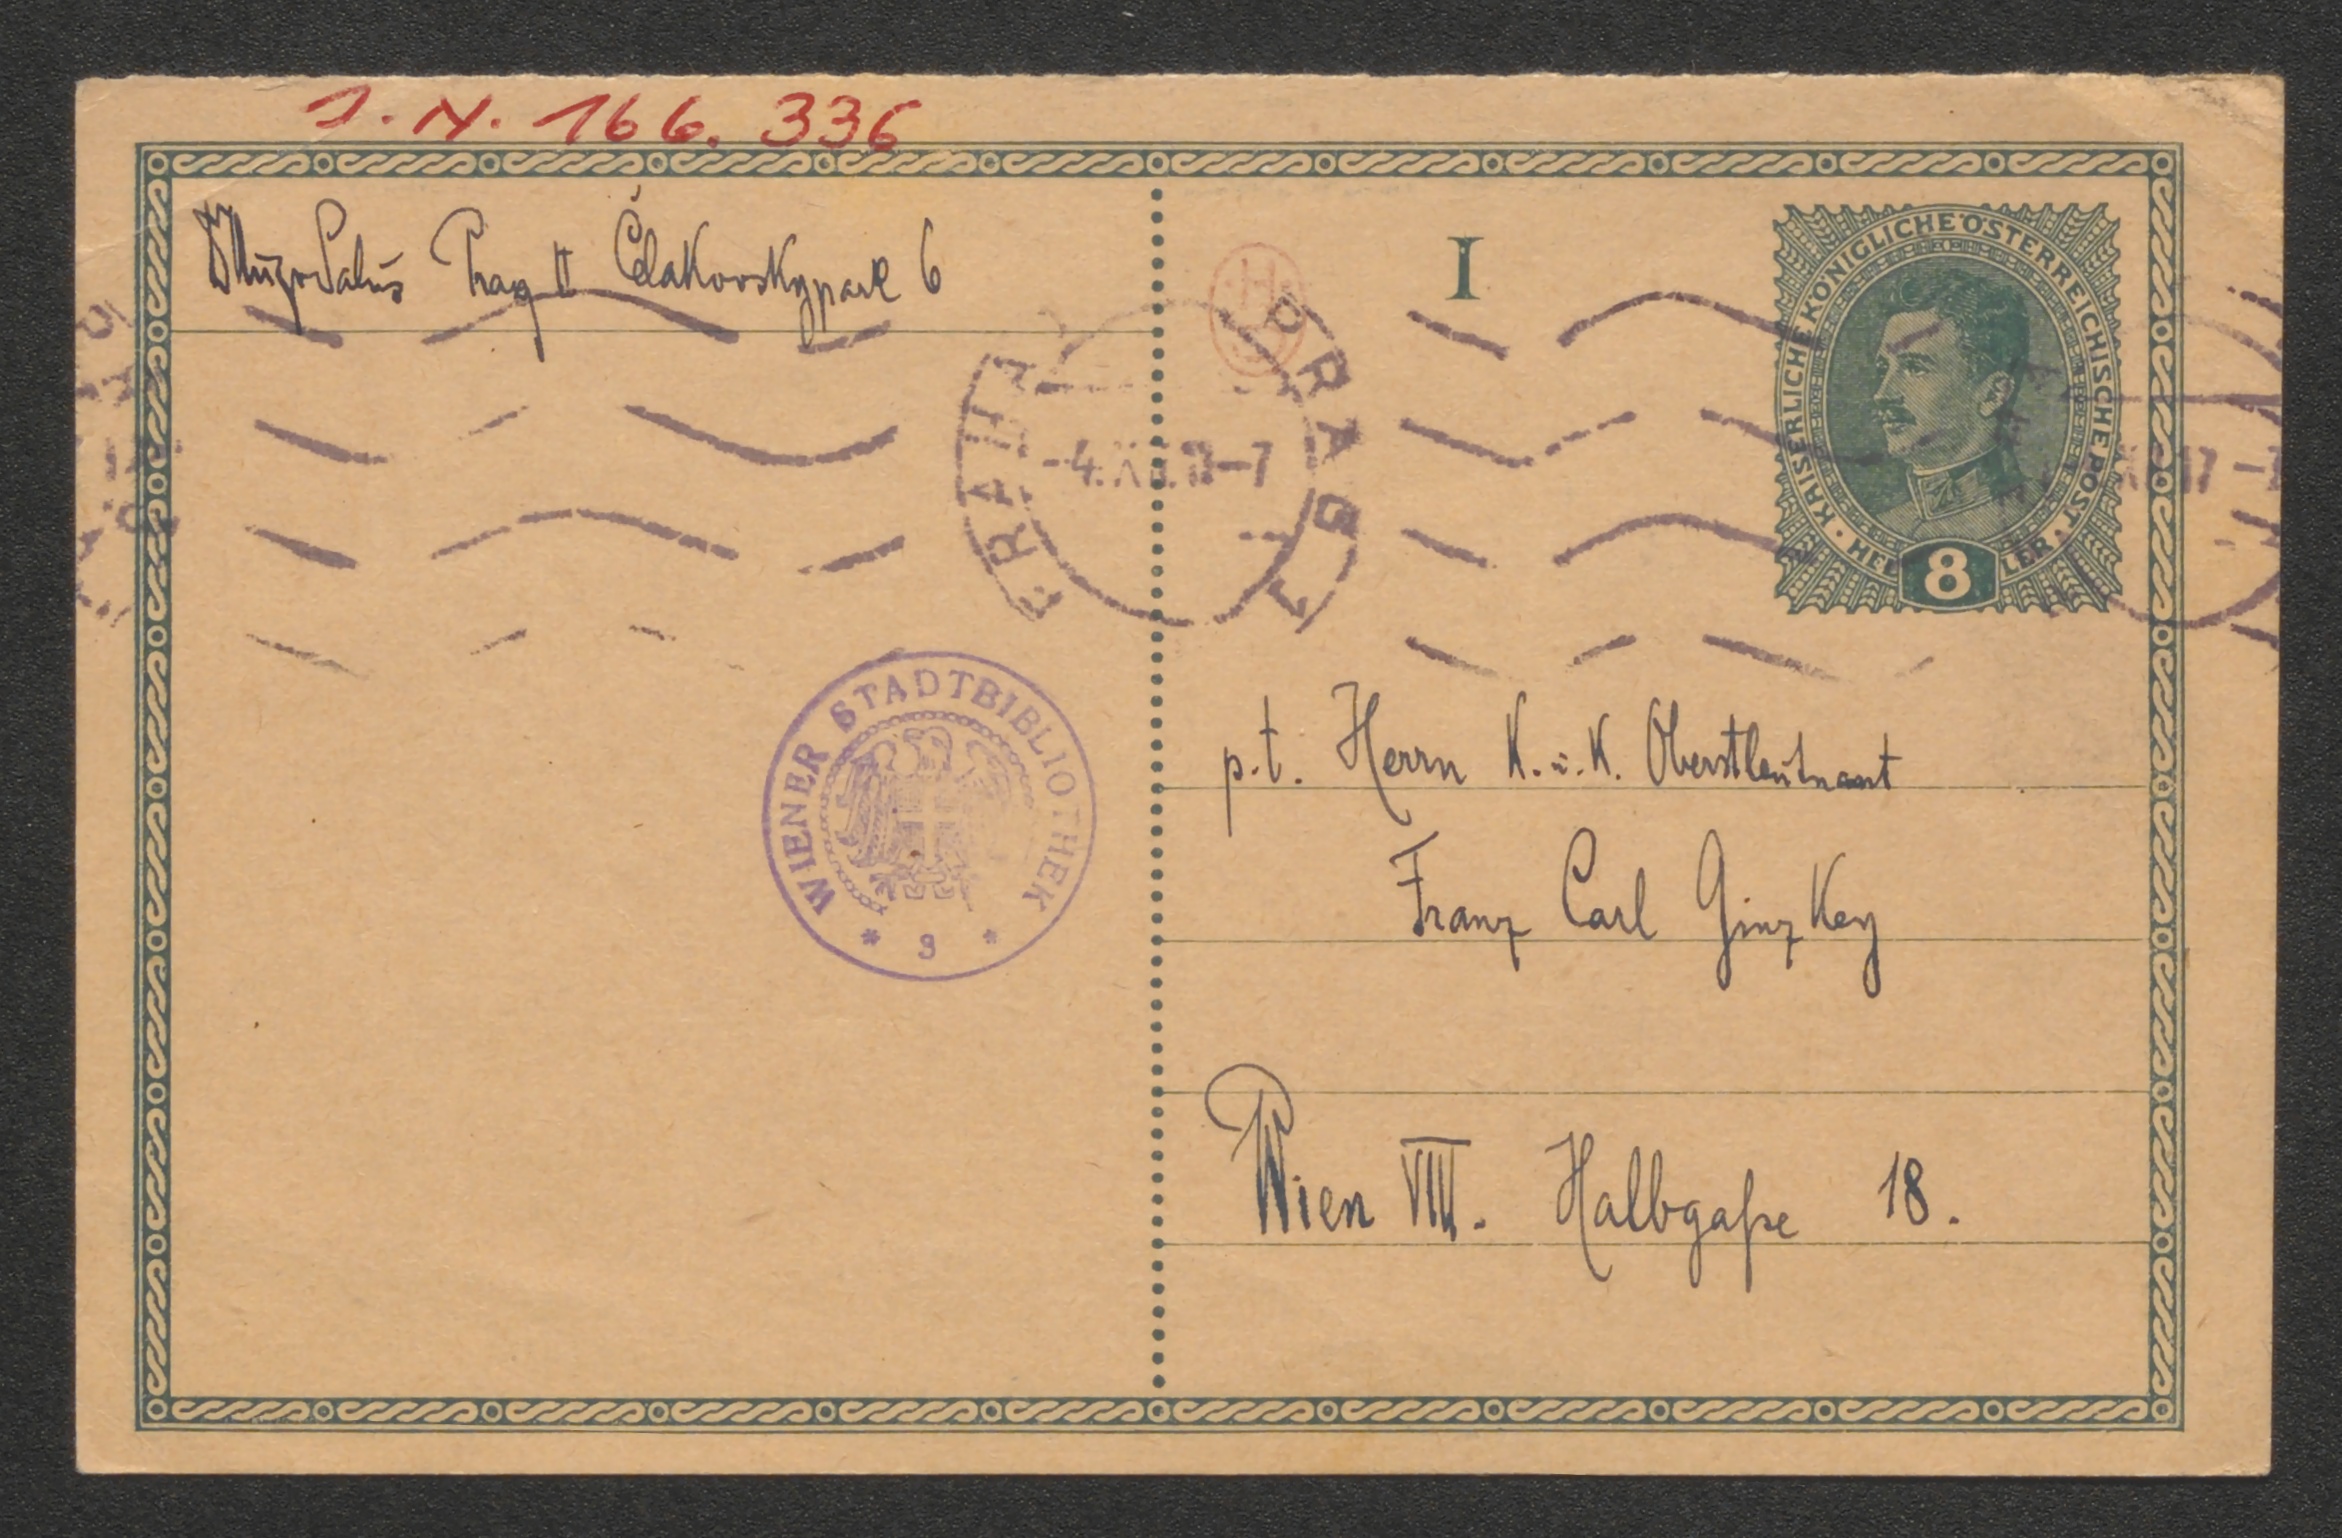 I. N. 166.336
Dr Hugo Salus Prag II Čelakovskypark 6
I
KAISERLICHE KÖNIGLICHE ÖSTERREICHISCHE POST
HELLER
8
PRAHA PRAG 1
-4.XII.17-7
WIENER STADTBIBLIOTHEK
* 9 *
p.t. Herrn K. u. K. Oberstleutnant
Franz Carl Ginzkey
Wien VIII. Halbgaße 18.